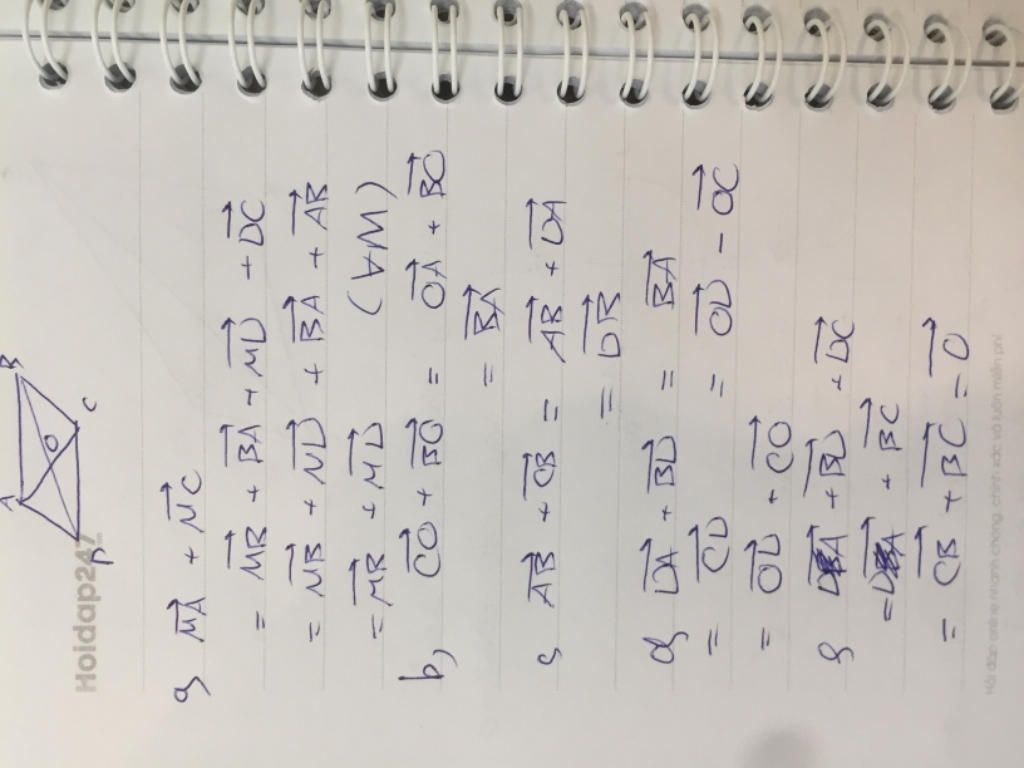 A B
O
D C
a, MA + MC
= MB + BA + MD + DC
= MB + MD + BA + AB
= MB + MD (∀M)
b, CO + BO = OA + BO
= BA
c, AB + CB = AB + DA
= DB
d, DA + BD = BA
= CD = OD - OC
= OD + CO
DA + BD + DC
= DA + BC
= CB + BC = O
Hoidap247
Hỏi đáp online nhanh chóng, chính xác và luôn miễn phí